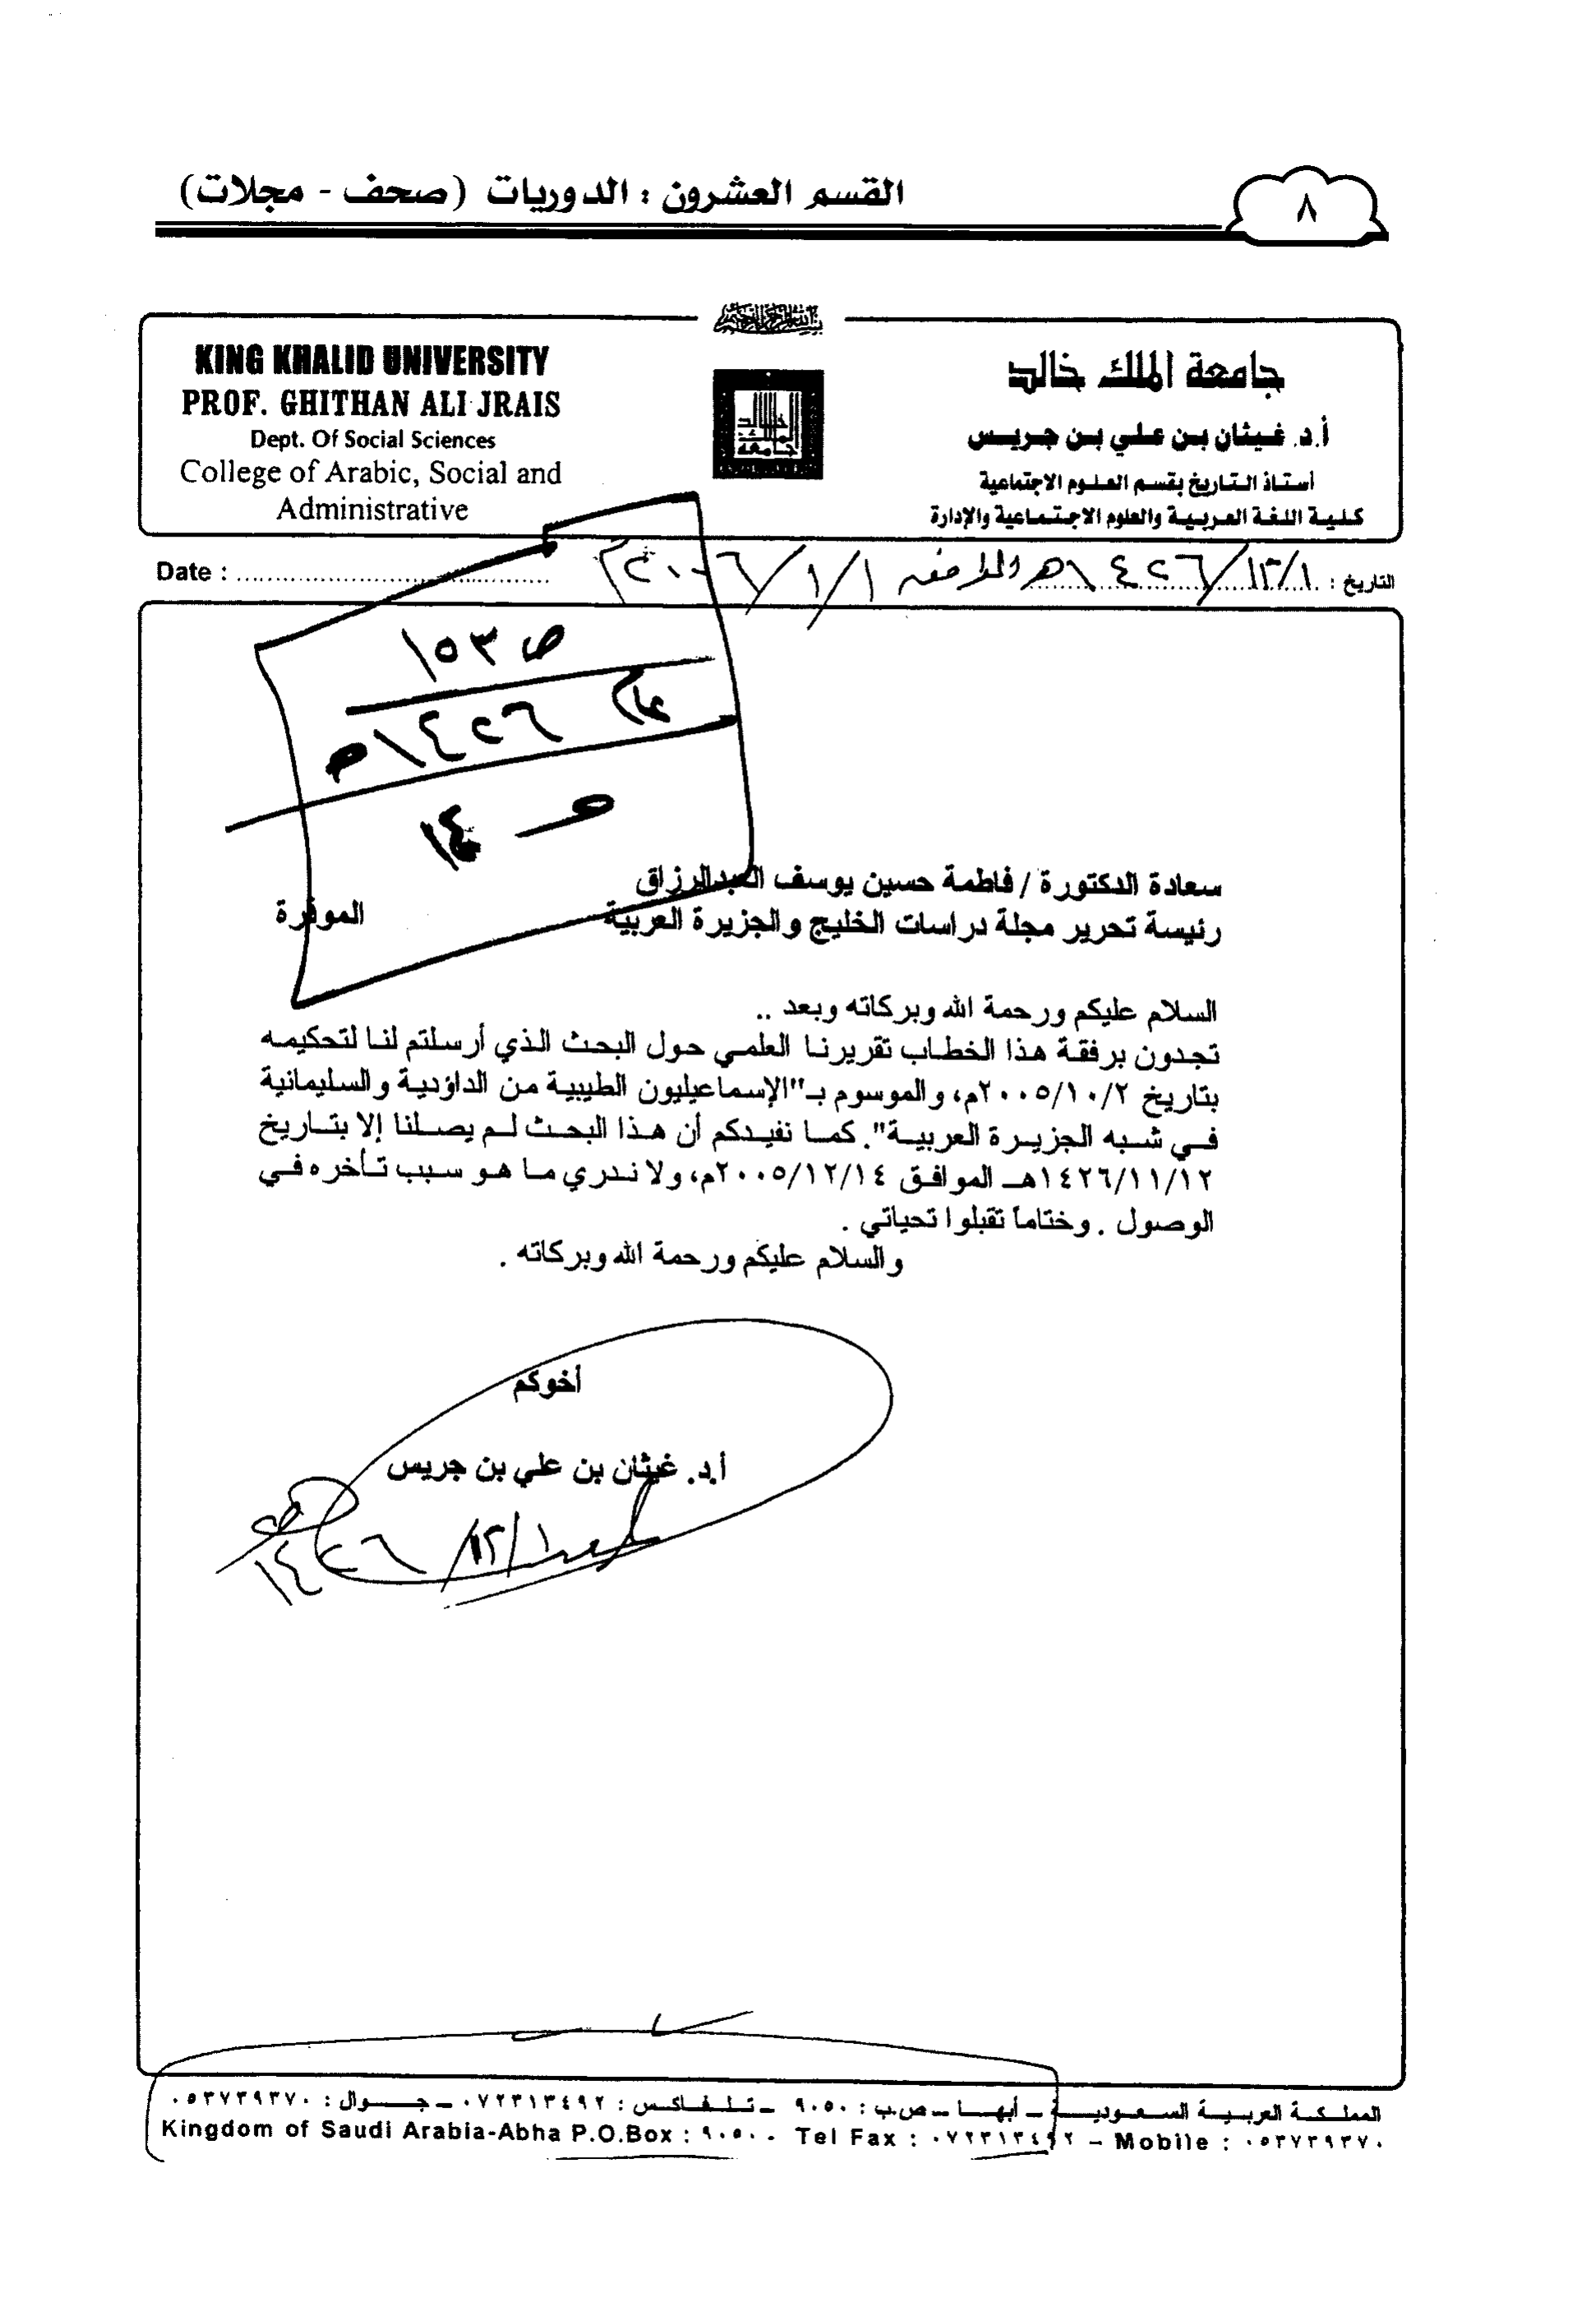 القسم العشرون : الدوريات (صحف - مجلات)
٨
بسم الله الرحمن الرحيم
KING KHALID UNIVERSITY
PROF. GHITHAN ALI JRAIS
Dept. Of Social Sciences
College of Arabic, Social and
Administrative
جامعة الملك خالد
جامعة الملك خالد
أ.د. غيثان بن علي بن جريس
أستاذ التاريخ بقسم العلوم الاجتماعية
كلية اللغة العربية والعلوم الاجتماعية والإدارة
التاريخ : ١/١٢/١٤٢٦هـ الموافق ١/١/٢٠٠٦م
Date :
ص ١٥٣
عام
١٤٢٦هـ
١٤
سعادة الدكتورة / فاطمة حسين يوسف العبدالرزاق
رئيسة تحرير مجلة دراسات الخليج والجزيرة العربية الموقرة
السلام عليكم ورحمة الله وبركاته وبعد ..
تجدون برفقة هذا الخطاب تقريرنا العلمي حول البحث الذي أرسلتم لنا لتحكيمه
بتاريخ ٢/١٠/٢٠٠٥م، والموسوم بـ"الإسماعيليون الطيبية من الداؤدية والسليمانية
في شبه الجزيرة العربية". كما نفيدكم أن هذا البحث لم يصلنا إلا بتاريخ
١٤٢٦/١١/١٢هـ الموافق ٢٠٠٥/١٢/١٤م، ولا ندري ما هو سبب تأخره في
الوصول . وختاماً تقبلوا تحياتي .
والسلام عليكم ورحمة الله وبركاته .
أخوكم
أ.د. غيثان بن علي بن جريس
١/١٢/١٤٢٦هـ
المملكة العربية السعودية – أبها – ص.ب : ٩٠٥٠ – تلفاكس : ٠٧٢٣١٣٤٩٢ – جوال : ٠٥٣٧٣٩٣٧٠
Kingdom of Saudi Arabia-Abha P.O.Box : ٩٠٥٠ - Tel Fax : ٠٧٢٣١٣٤٩٢ – Mobile : ٠٥٣٧٣٩٣٧٠